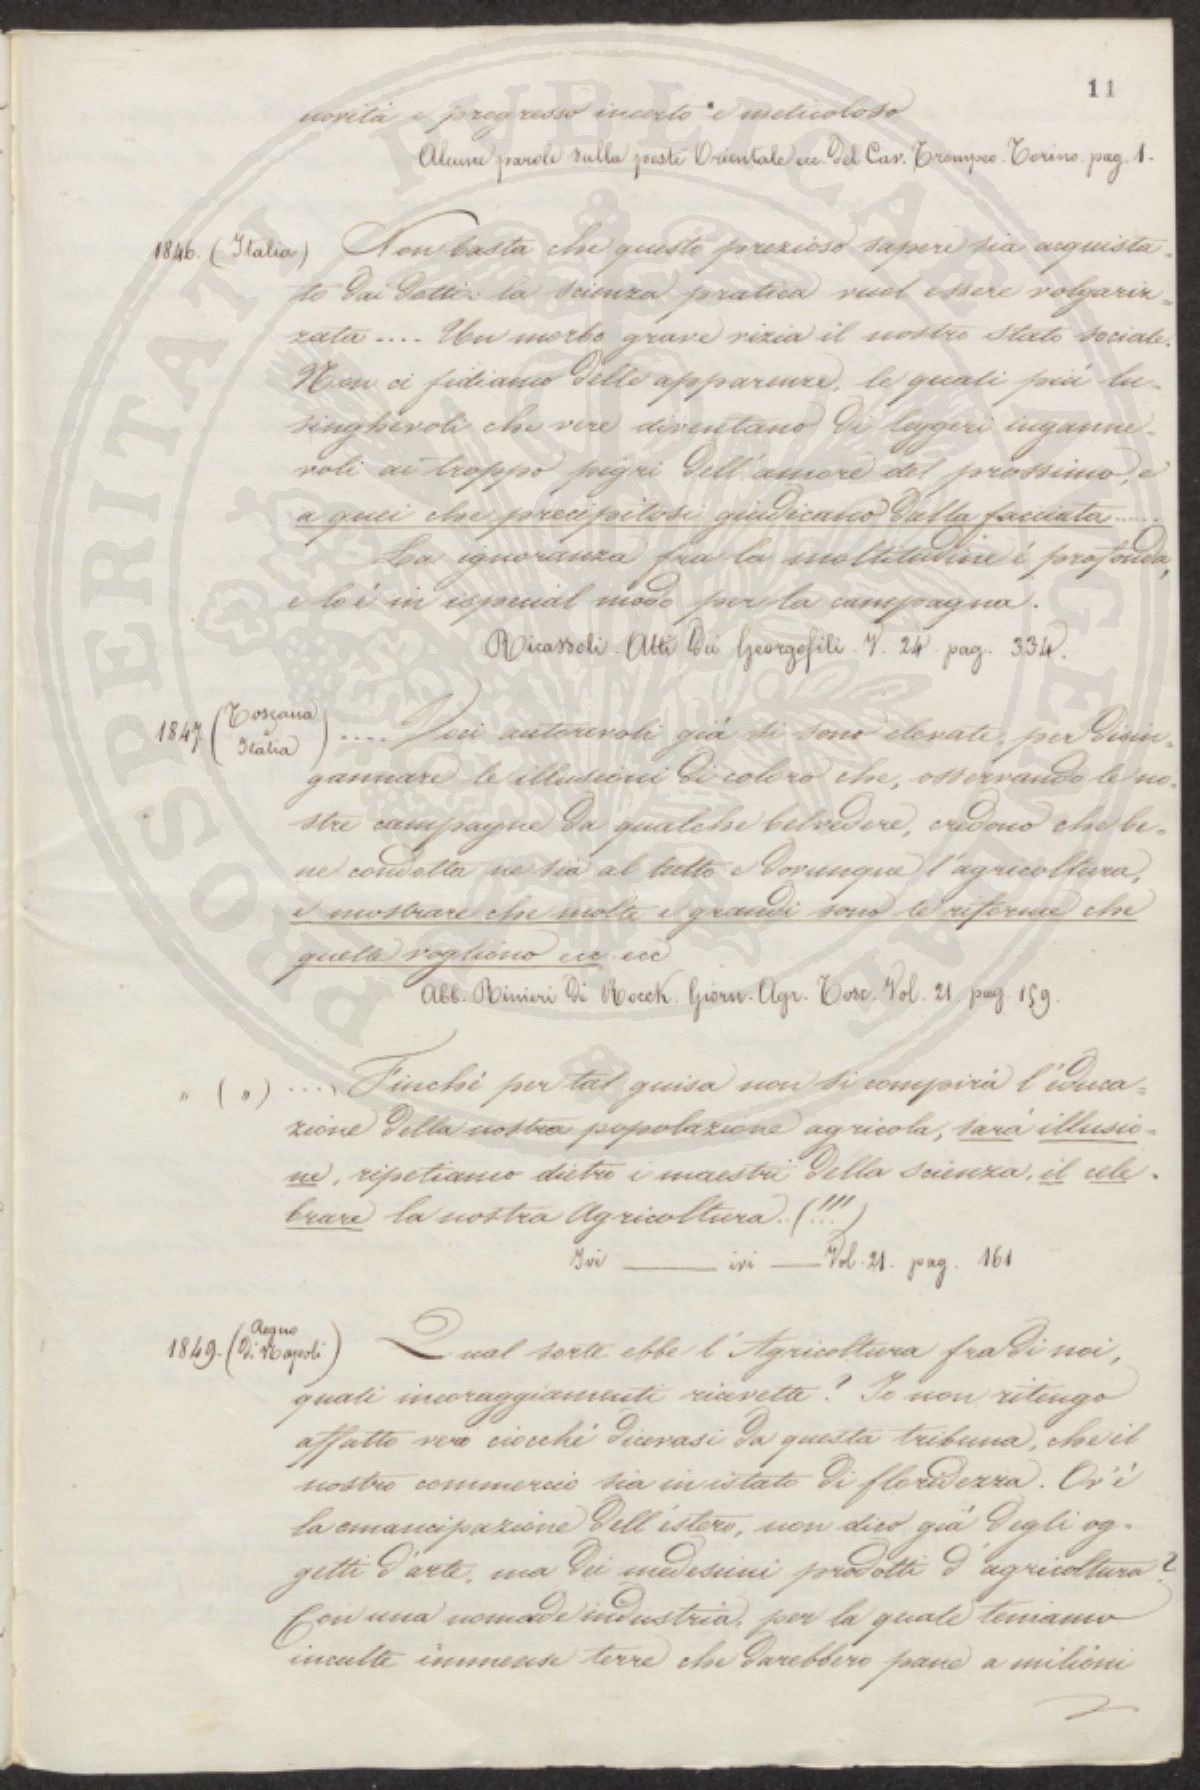 11
novità e progresso incerto e meticoloso
Alcune parole sulla peste Orientale ecc. Del Cav. Trompeo. Torino. pag. 1.
1846. (Italia) Non basta che questo prezioso sapere sia acquista-
to dai dotti: la scienza pratica vuol essere volgariz-
zata .... Un morbo grave vizia il nostro stato sociale.
Non ci fidiamo delle apparenze, le quali più lu-
singhevoli che vere diventano di leggeri inganne-
voli ai troppo pigri dell'amore del prossimo, e
a quei che precipitosi giudicano dalla facciata .....
La ignoranza fra la moltitudine è profonda,
e lo è in ispecial modo per la campagna.
Ricasoli. Atti dei Georgofili. V. 24. pag. 334.
1847 (Toscana e Italia) .... Voci autorevoli già si sono elevate, per disin-
gannare le illusioni di coloro che, osservando le no-
stre campagne da qualche belvedere, credono che be-
ne condotta ne sia al tutto e dovunque l'agricoltura,
e mostrare che molte e grandi sono le riforme che
quelle vogliono ecc ecc
Abb. Rinieri di Rocck. Giorn. Agr. Tosc. Vol. 21. pag 159.
" (") .... Finché per tal guisa non si compirà l'educa-
zione della nostra popolazione agricola, sarà illusio-
ne, ripetiamo dietro i maestri della scienza, il cele-
brare la nostra Agricoltura..(!!!)
Ivi ____ ivi ____ Vol. 21. pag. 161
1849. (Regno di Napoli) Qual sorte ebbe l'Agricoltura fra di noi,
quali incoraggiamenti ricevette? Io non ritengo
affatto vero ciocché dicevasi da questa tribuna, che il
nostro commercio sia in istato di floridezza. Ov'è
la emancipazione dell'estero, non dico già degli og-
getti d'arte, ma dei medesimi prodotti d'agricoltura?
Con una nomade industria, per la quale teniamo
inculte immense terre che darebbero pane a milioni
PROSPERITATI PUBLICAE AUGENDAE